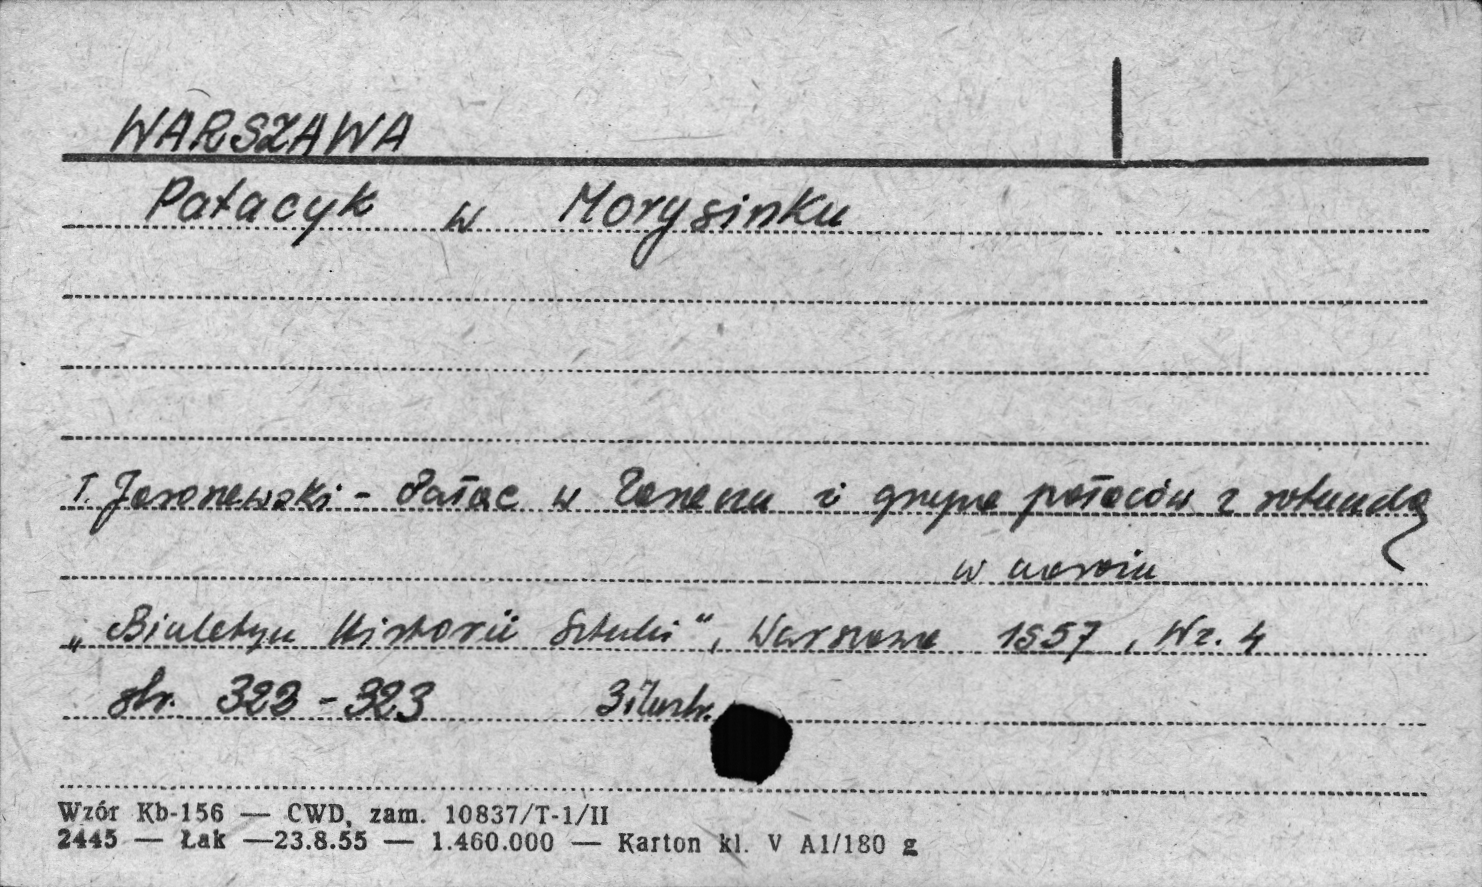 WARSZAWA
Pałacyk w Morysinku
T. Jaroszewski - Pałac w i grupa pałaców z rotundą
w
„Biuletyn Historii Sztuki", Warszawa 1957, Nr. 4
str. 322 - 323 3 ilustr.
Wzór Kb-156 — CWD, zam. 10837/T-1/II
2445 — Łak —23.8.55 — 1.460.000 — Karton kl. V A1/180 g